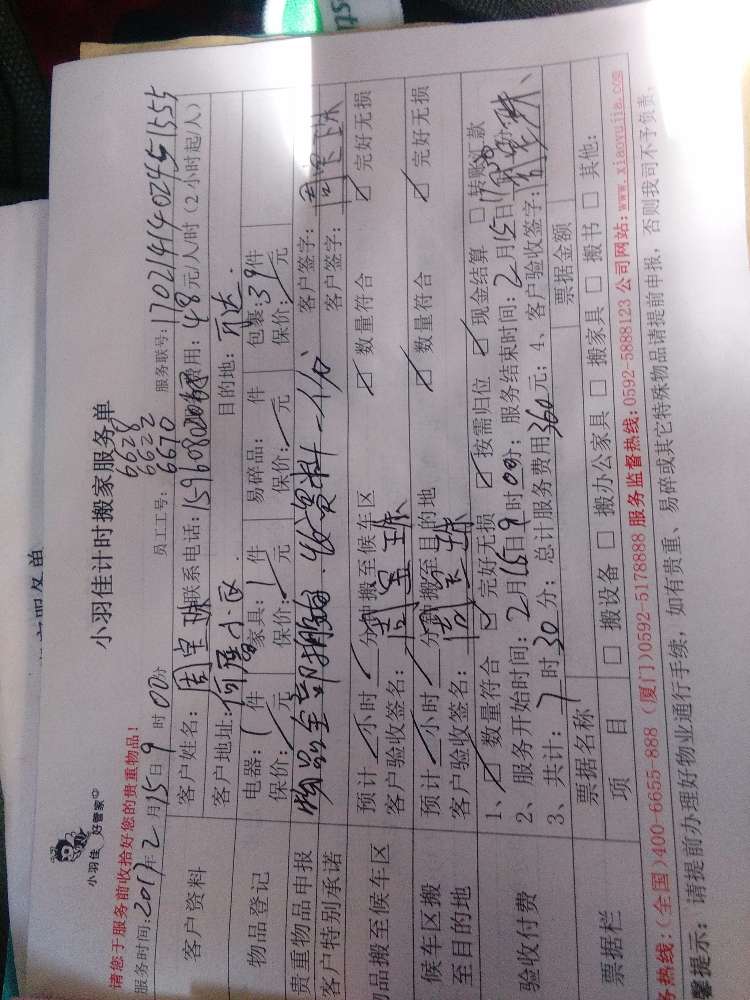 小羽佳 好管家
小羽佳计时搬家服务单
请您于服务前收拾好您的贵重物品!
6628
6622
服务时间:2017年2月15日9时00分 员工工号:6670 服务联号:1702141402451555
客户资料
客户姓名:周宝珠 联系电话: 费用:48元/人/时(2小时起/人)
客户地址: 小区 目的地:
物品登记
电器:1件 家具:1件 易碎品: 件 包裹:39件
保价: 元 保价: 元 保价: 元 保价: 元
贵重物品申报 物品全部 资料一份 客户签字:周宝珠
客户特别承诺 客户签字:
物品搬至候车区
预计 小时 分钟搬至候车区 ☑ 数量符合 ☑ 完好无损
客户验收签名:周宝珠
候车区搬至目的地
预计 小时 分钟搬至目的地 ☑ 数量符合 ☑ 完好无损
客户验收签名:周宝珠
验收付费
1、☑ 数量符合 ☑ 完好无损 ☑ 按需归位 ☑ 现金结算 □ 转账汇款
2、服务开始时间:2月15日9时00分;服务结束时间:2月15日
3、共计:7时30分;总计服务费用360元;4、客户验收签字:周宝珠
票据栏
票据名称 票据金额
项目 □ 搬设备 □ 搬办公家具 □ 搬家具 □ 搬书 □ 其他:
务热线:(全国)400-6655-888 (厦门)0592-5178888 服务监督热线:0592-5888123 公司网站:www.xiaoyujia.com
馨提示:请提前办理好物业通行手续,如有贵重、易碎或其它特殊物品请提前申报,否则我司不予负责